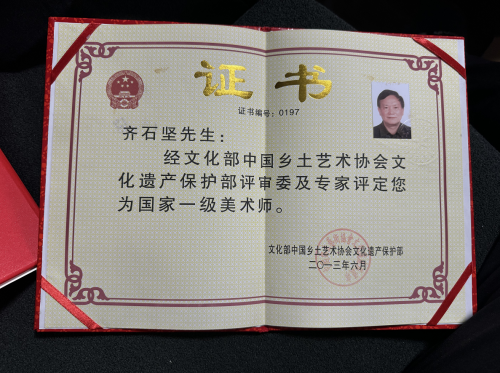 证书
证书编号：0197
齐石坚先生：
经文化部中国乡土艺术协会文
化遗产保护部评审委及专家评定您
为国家一级美术师。
文化部中国乡土艺术协会文化遗产保护部
二〇一三年六月